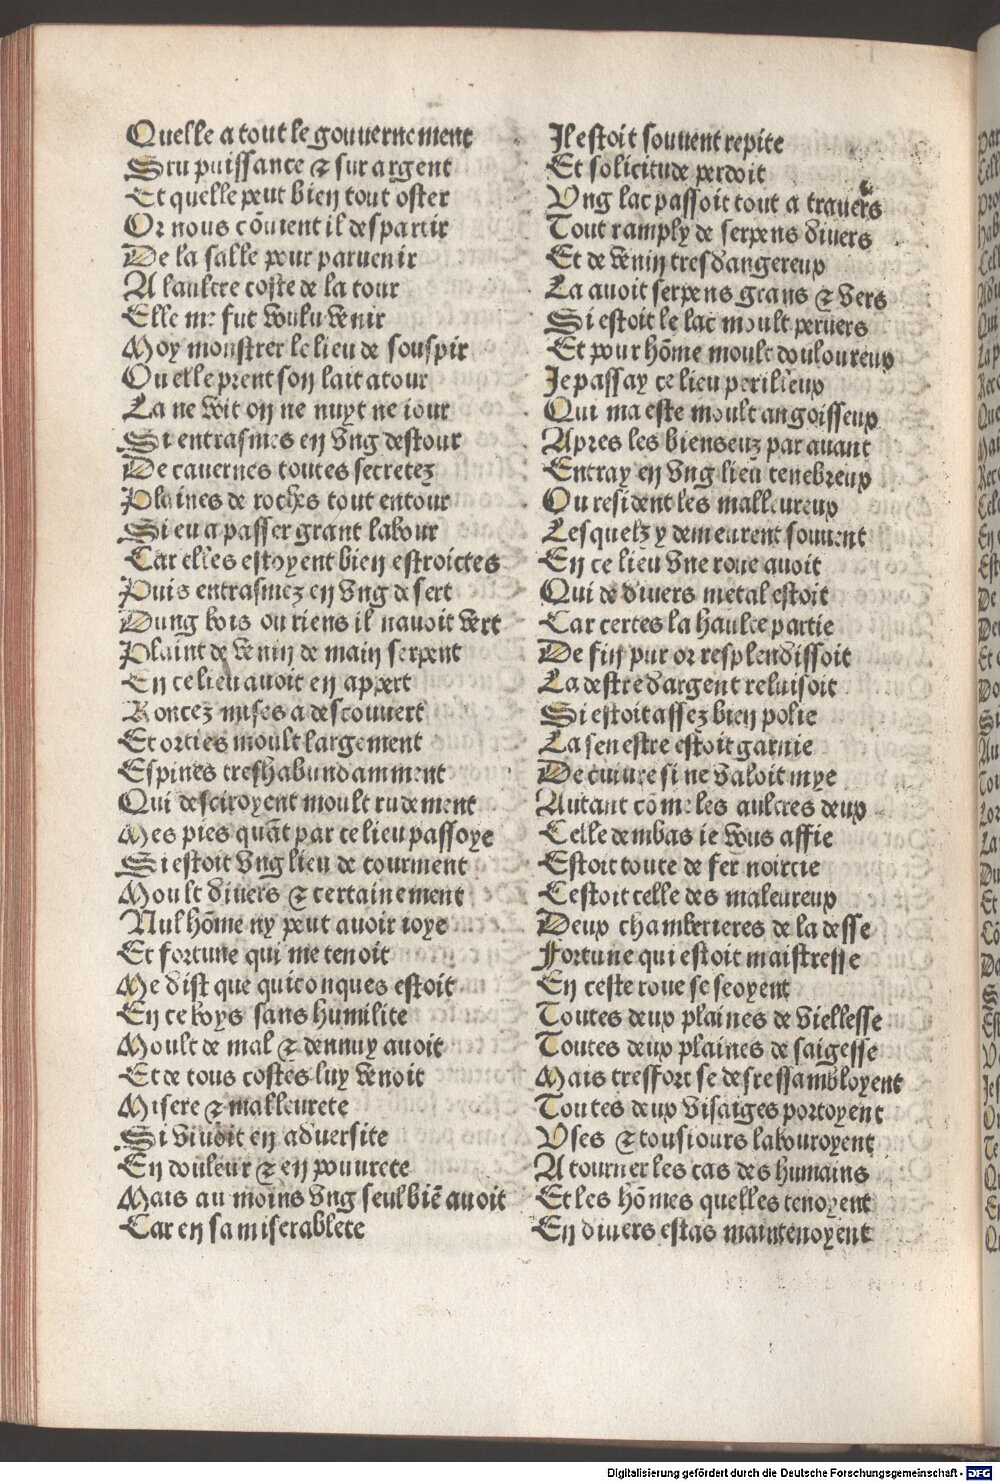 Quelle a tout le gouuernement
Sru puissance & sur argent
Et quelle peut bien tout oster
Or nous cōuient il despartir
De la salle pour paruenir
A laultre coste de la tour
Elle me fut voulu venir
Moy monstrer le lieu de souspir
Ou elle prent son lait atour
La ne voit on ne nuyt ne iour
Si entrasmes en vng destour
De cauernes toutes secretez
Plaines de roches tout entour
Si eu a passer grant labour
Car elles estoyent bien estroictes
Puis entrasmez en vng desert
Dung bois ou riens il nauoit vert
Plaint de venin de main serpent
En ce lieu auoit en appert
Roncez mises a descouuert
Et orties moult largement
Espines treshabundamment
Qui desciroyent moult rudement
Mes pies quāt par ce lieu passoye
Si estoit vng lieu de tourment
Moult diuers & certainement
Nul hōme ny peut auoir ioye
Et fortune qui me tenoit
Me dist que quiconques estoit
En ce boys sans humilite
Moult de mal & dennuy auoit
Et de tous costes luy venoit
Misere & malleurete
Si viuoit en aduersite
En douleur & en pouurete
Mais au moins vng seul biē auoit
Car en sa miserablete
Il estoit souuent repite
Et solicitude perdoit
Vng lac passoit tout a trauers
Tout ramply de serpens diuers
Et de venin tresdangereux
La auoit serpens grans & vers
Si estoit le lac moult peruers
Et pour hōme moult douloureux
Je passay ce lieu perilieux
Qui ma este moult angoisseux
Apres les bienseuz par auant
Entray en vng lieu tenebreux
Ou resident les malleureux
Lesquelz y demeurent souuent
En ce lieu vne roue auoit
Qui de diuers metal estoit
Car certes la haulte partie
De fin pur or resplendissoit
La destre dargent reluisoit
Si estoit assez bien polie
La senestre estoit garnie
De cuiure si ne valoit mye
Autant cōme les aultres deux
Celle dembas ie vous affie
Estoit toute de fer noircie
Cestoit celle des maleureux
Deux chamberieres de la desse
Fortune qui estoit maistresse
En ceste roue se seoyent
Toutes deux plaines de viellesse
Toutes deux plaines de saigesse
Mais tresfort se desressambloyent
Toutes deux visaiges portoyent
Vses & tousiours labouroyent
A tourner les cas des humains
Et les hōmes quelles tenoyent
En diuers estas maintenoyent
Digitalisierung gefördert durch die Deutsche Forschungsgemeinschaft - DFG